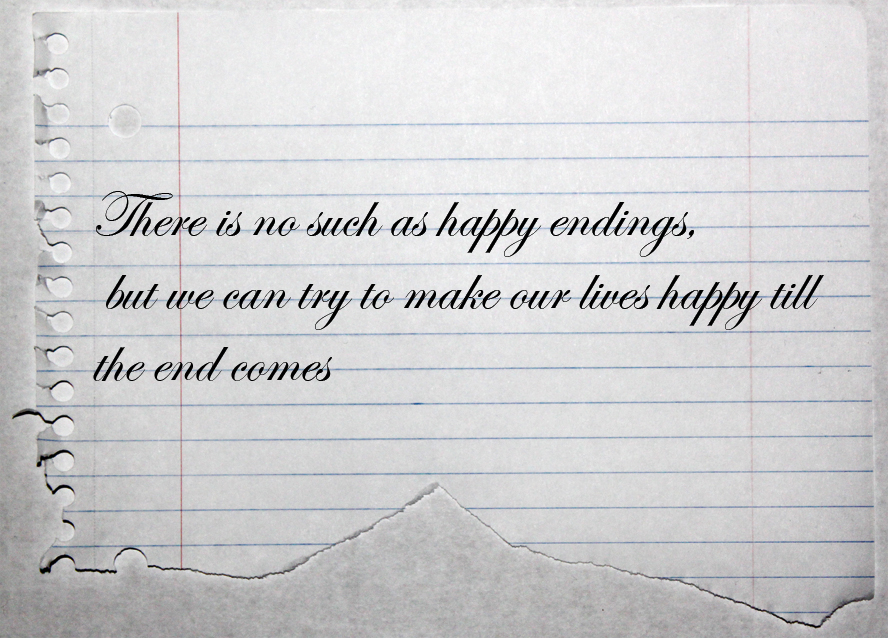 There is no such as happy endings,
but we can try to make our lives happy till
the end comes